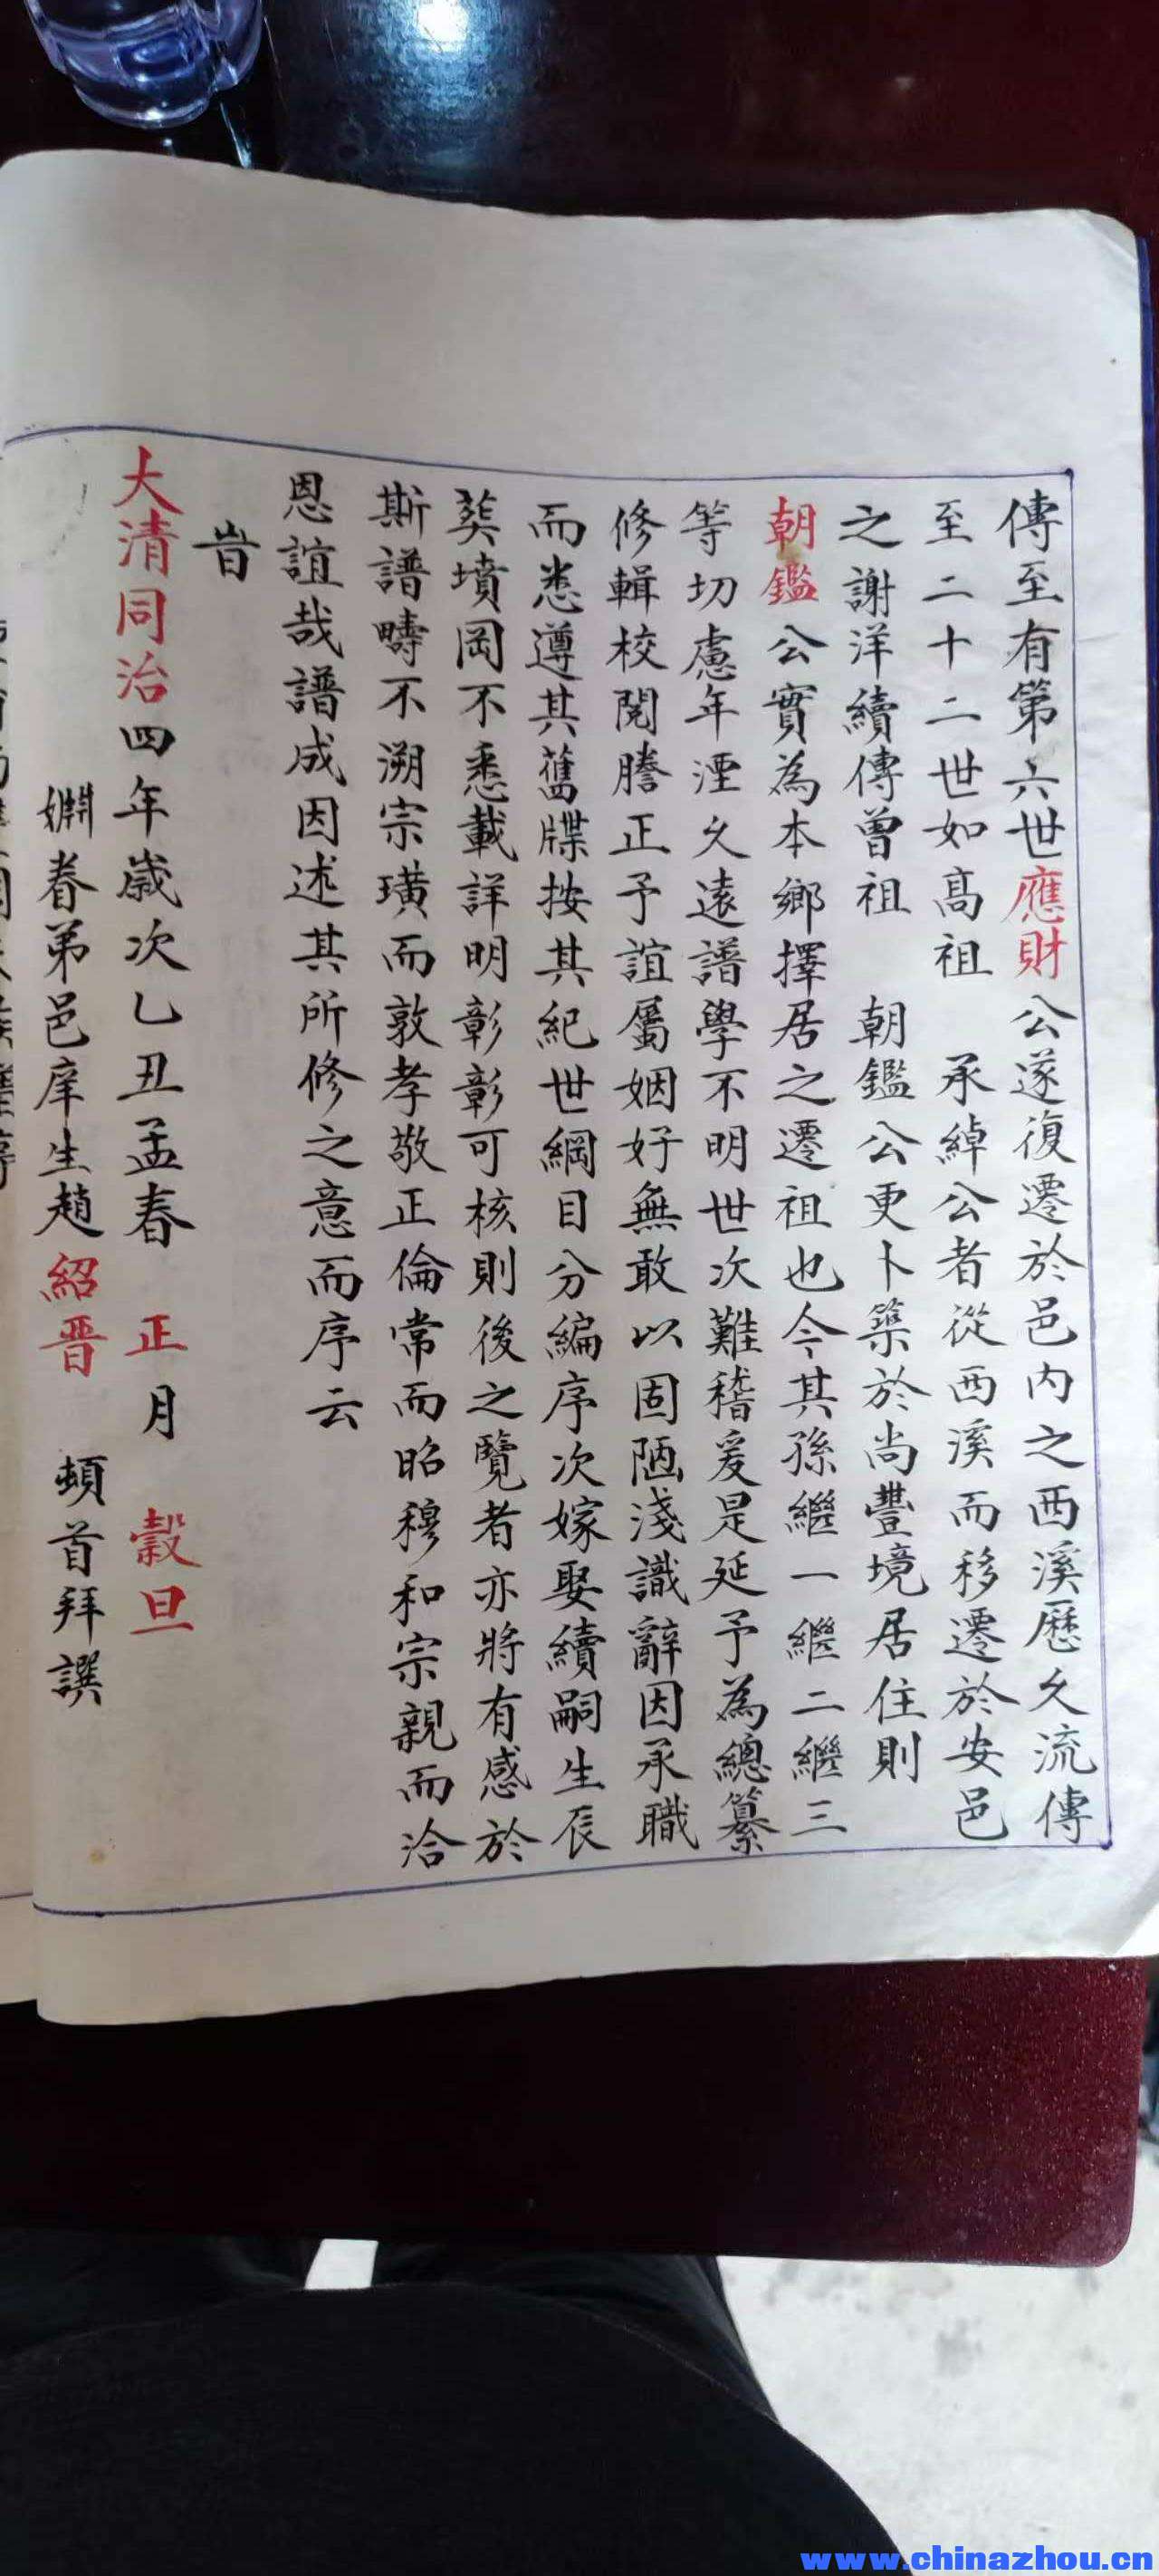 傳至有第六世應財公遂復遷於邑内之西溪歷久流傳
至二十二世如高祖 承綽公者從西溪而移遷於安邑
之謝洋續傳曾祖 朝鑑公更卜築於尚豐境居住則
朝鑑公實為本鄉擇居之遷祖也今其孫繼一繼二繼三
等切慮年湮久遠譜學不明世次難稽爰是延予為總纂
修輯校閱謄正予誼屬姻好無敢以固陋淺識辭因承職
而悉遵其舊牒按其紀世綱目分編序次嫁娶續嗣生辰
葬墳岡不悉載詳明彰彰可核則後之覽者亦將有感於
斯譜疇不溯宗璜而敦孝敬正倫常而昭穆和宗親而洽
恩誼哉譜成因述其所修之意而序云
旹
大清同治四年歲次乙丑孟春 正月 穀旦
姻眷弟邑庠生趙紹晋 頓首拜譔
www.chinazhou.cn